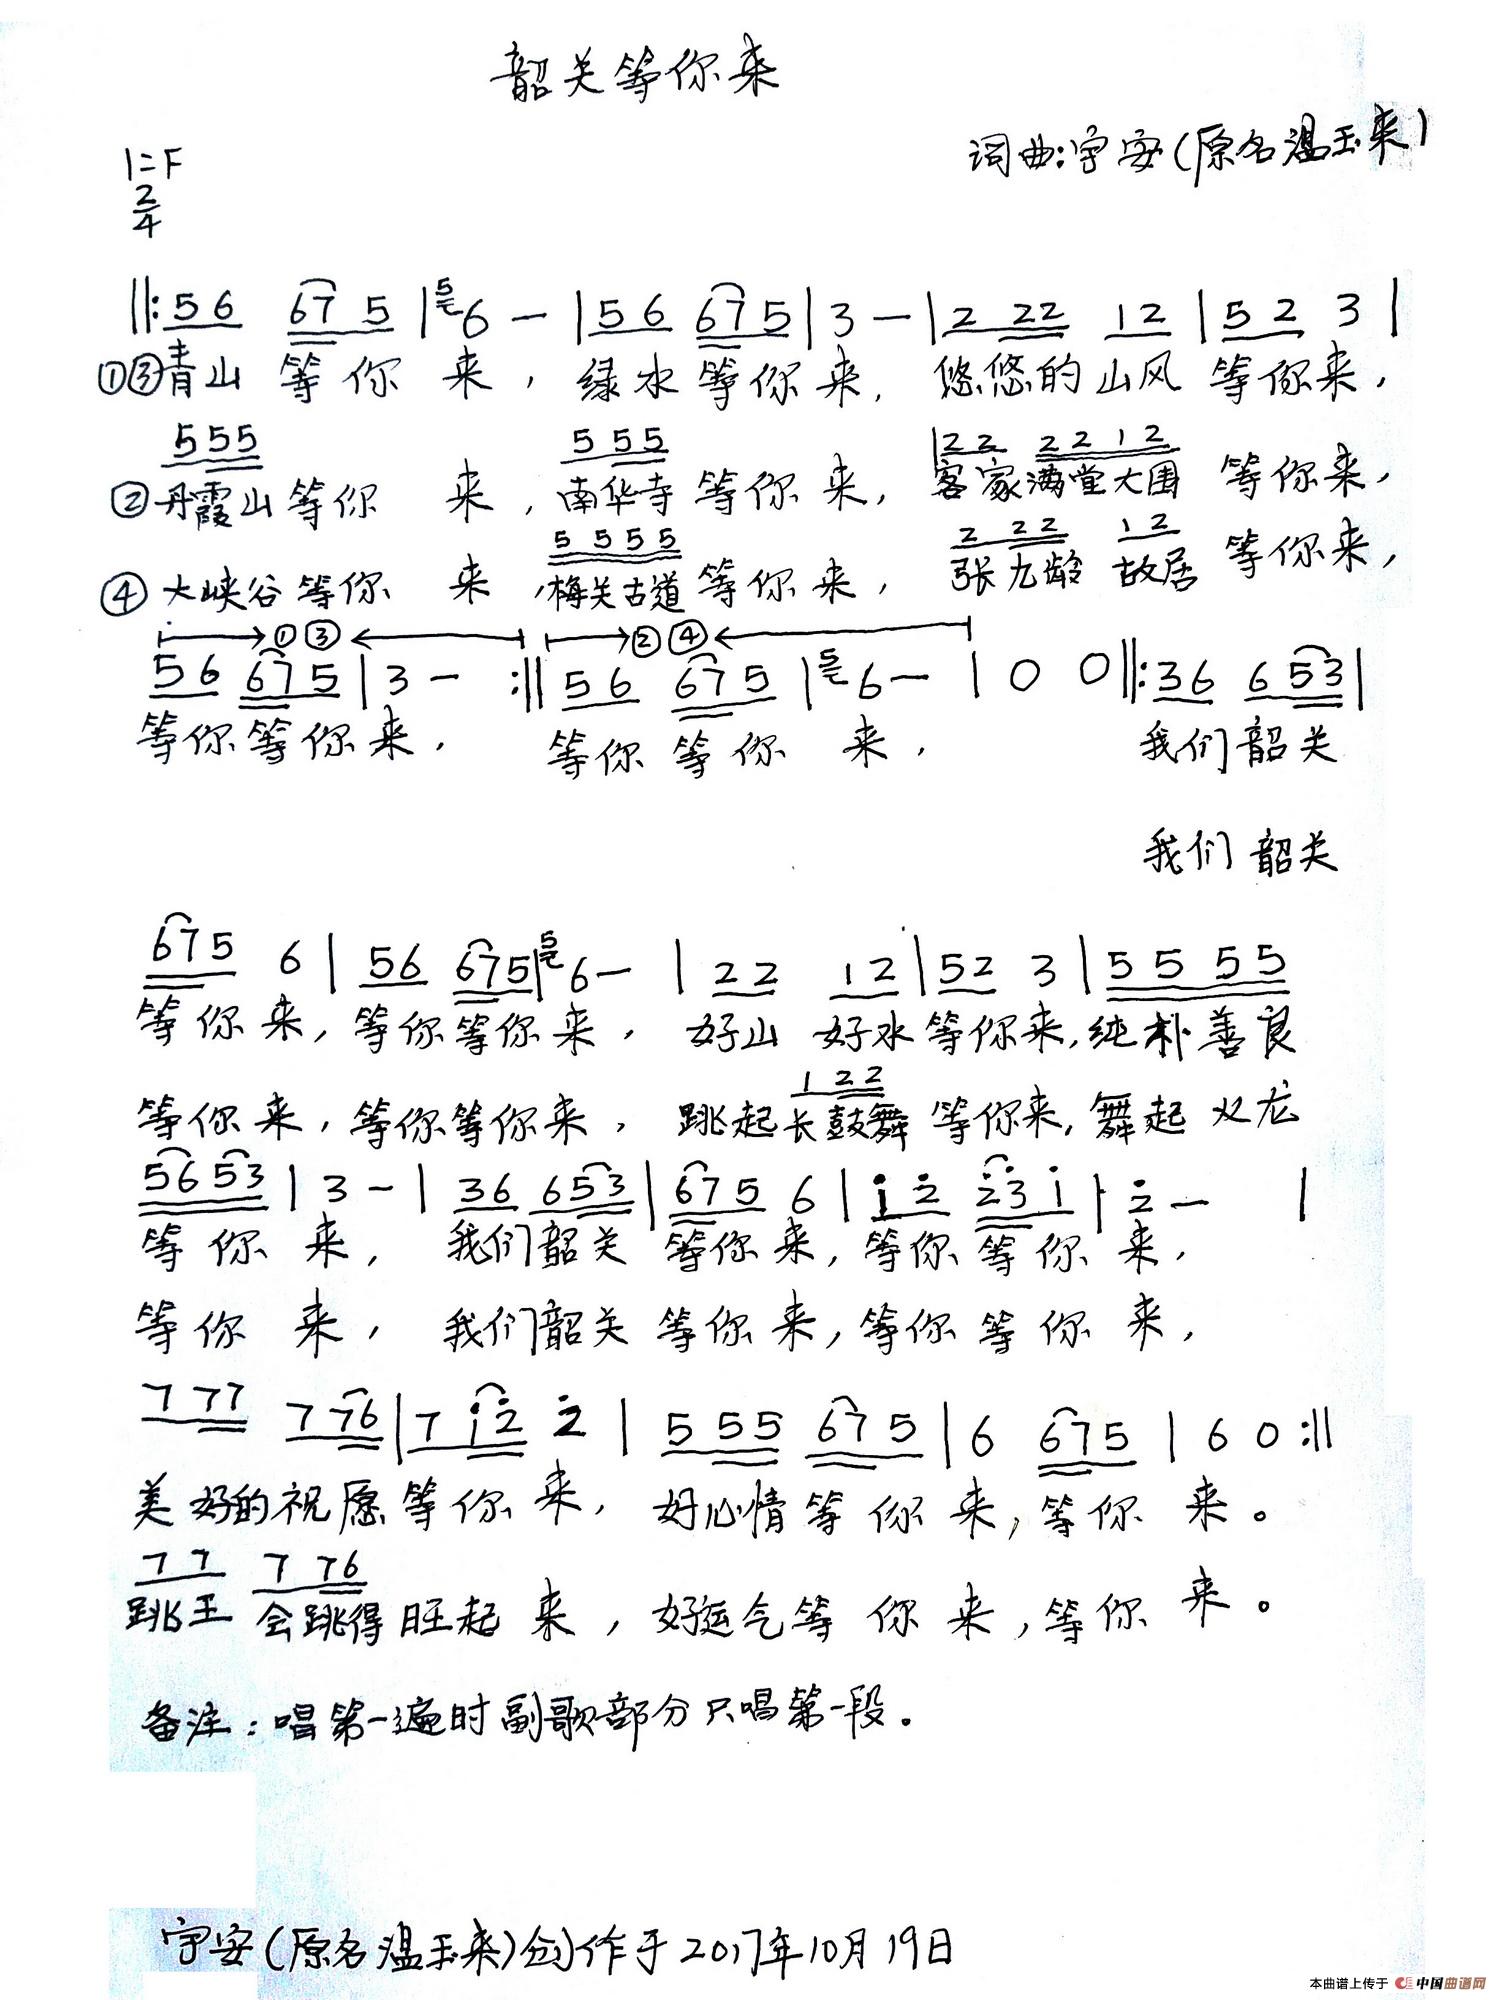 韶关等你来
词曲:宇安(原名温玉来)
1=F
2/4
‖: 5 6 67 5 | 5 6 — | 5 6 67 5 | 3 — | 2 22 12 | 5 2 3 |
①③青山 等你 来, 绿水等你来, 悠悠的山风 等你来,
5 55 5 55 22 2212
②丹霞山等你 来, 南华寺等你来, 客家满堂大围 等你来,
5555 2 22 12
④大峡谷等你 来, 梅关古道等你来, 张九龄 故居 等你来,
①③ ②④
56 675 | 3 — :‖ 56 675 | 5 6 — | 0 0 ‖: 36 653 |
等你等你来, 等你等你 来, 我们韶关
我们韶关
675 6 | 56 675 | 5 6 — | 22 12 | 52 3 | 5555
等你来, 等你等你来, 好山 好水等你来, 纯朴善良
1 22
等你来, 等你等你来, 跳起长鼓舞 等你来, 舞起双龙
5653 | 3 — | 36 653 | 675 6 | i 2̇ 2̇3̇ i | 2̇ — |
等你 来, 我们韶关 等你来, 等你等你来,
等你 来, 我们韶关 等你来, 等你等你来,
7 77 7 76 | 7 i2̇ 2̇ | 5 55 67 5 | 6 67 5 | 6 0 :‖
美好的祝愿等你来, 好心情等你来, 等你 来。
77 7 76
跳王 会跳得旺起来, 好运气等你来, 等你 来。
备注:唱第一遍时副歌部分只唱第一段。
宇安(原名温玉来)创作于2017年10月19日
本曲谱上传于 中国曲谱网